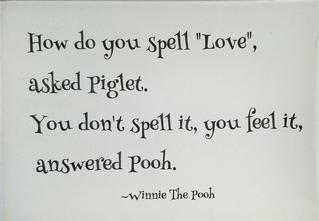 How do you spell "Love",
asked Piglet.
You don't spell it, you feel it,
answered Pooh.
~Winnie The Pooh